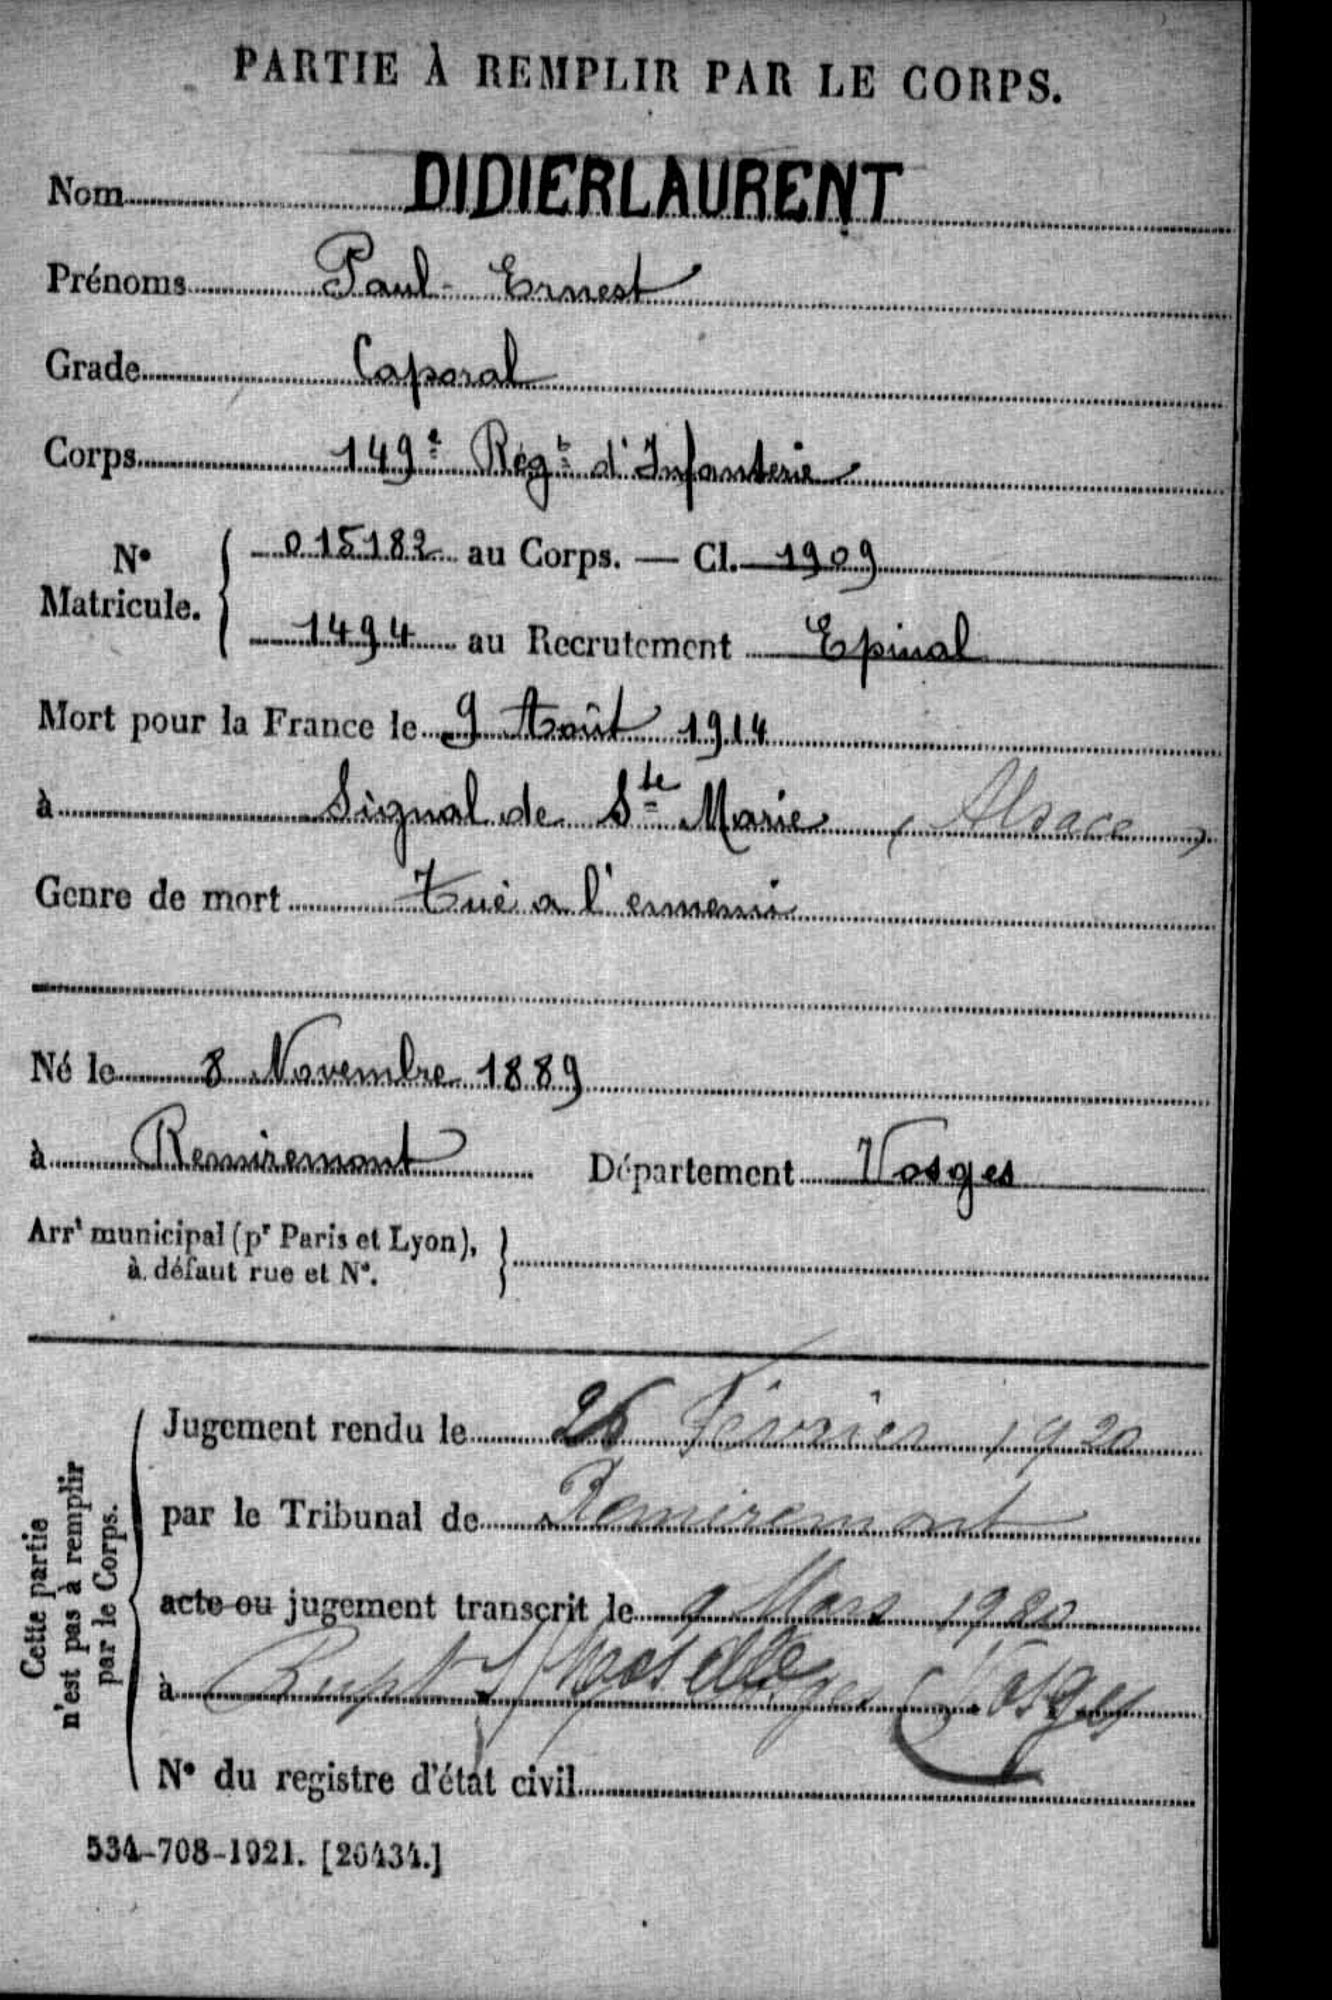 PARTIE À REMPLIR PAR LE CORPS.
Nom DIDIERLAURENT
Prénoms Paul-Ernest
Grade Caporal
Corps 149e Régt d'Infanterie
No Matricule. { 015182 au Corps. — Cl. 1909
1494 au Recrutement Epinal
Mort pour la France le 9 Août 1914
à Signal de Ste Marie (Alsace)
Genre de mort Tué a l'ennemi
Né le 8 Novembre 1889
à Remiremont Département Vosges
Arrt municipal (pr Paris et Lyon), }
à défaut rue et No.
Cette partie
n'est pas à remplir
par le Corps.
Jugement rendu le 26 Février 1920
par le Tribunal de Remiremont
acte ou jugement transcrit le 9 Mars 1920
à Rupt s/ Moselle Vosges
No du registre d'état civil
534-708-1921. [26434.]